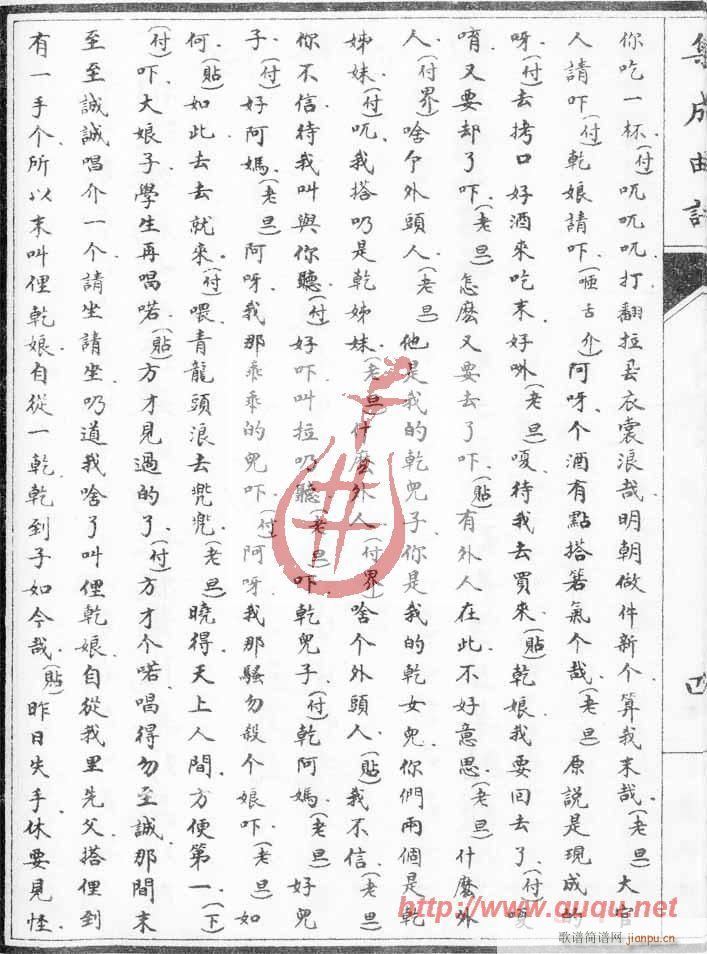 集成曲譜
四
你吃一杯、(付)吭吭吭、打翻拉丟衣裳浪哉、明朝做件新个、算我末哉、(老旦)大官
人請吓、(付)乾娘請吓、(咂舌介)阿呀、个酒有點搭箬氣个哉、(老旦)原說是現成的
呀、(付)去拷口好酒來吃末好㖏、(老旦)嗄、待我去買來、(貼)乾娘、我要回去了、(付)嗄
唷、又要却了吓、(老旦)怎麽又要去了吓、(貼)有外人在此、不好意思、(老旦)什麽外
人、(付界)啥个外頭人、(老旦)他是我的乾兒子、你是我的乾女兒、你們兩個是乾
姊妹、(付)吭、我搭乃是乾姊妹、(老旦)什麽外人、(付界)啥个外頭人、(貼)我不信、(老旦)
你不信、待我叫與你聽、(付)好吓、叫拉乃聽、(老旦)吓、乾兒子、(付)乾阿媽、(老旦)好兒
子、(付)好阿媽、(老旦)阿呀、我那乖乖的兒吓、(付)阿呀、我那騷勿殺个娘吓、(老旦)如
何、(貼)如此去去就來、(付)喂、青龍頭浪去兜兜、(老旦)曉得、天上人間、方便第一、(下)
(付)吓、大娘子、學生再唱喏、(貼)方才見過的了、(付)方才个喏、唱得勿至誠、那間末
至至誠誠唱介一个、請坐請坐、乃道我啥了叫俚乾娘、自從我里先父搭俚到
有一手个、所以末叫俚乾娘、自從一乾乾到子如今哉、(貼)昨日失手、休要見怪、
http://www.guqu.net
歌谱简谱网 jianpu.cn